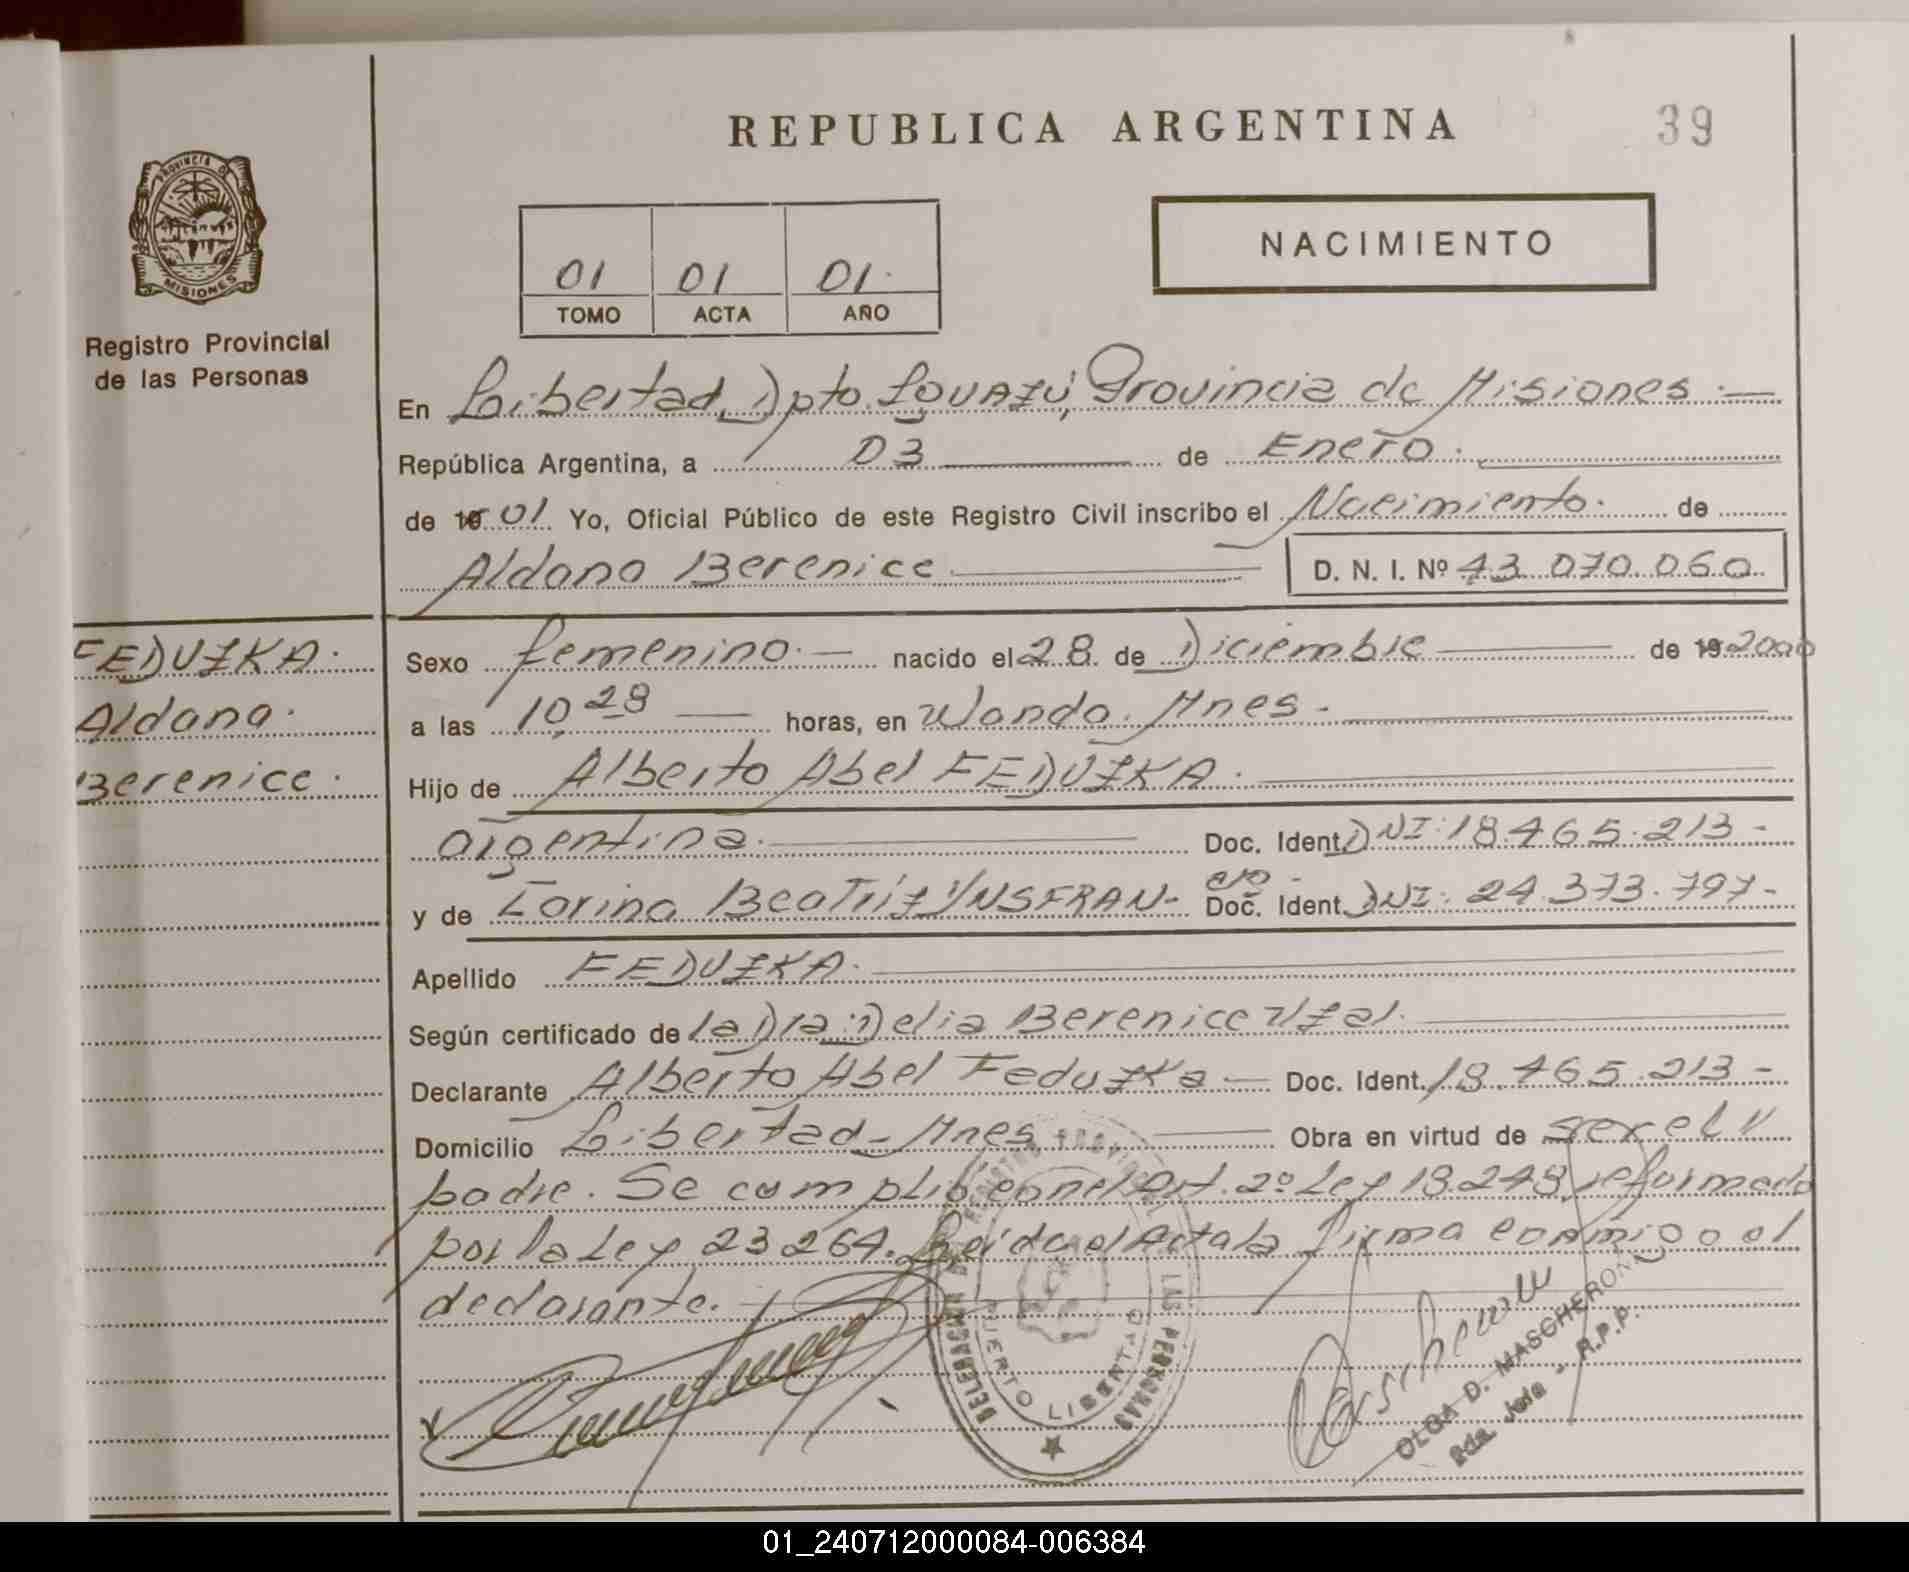 REPUBLICA ARGENTINA
39
PROVINCIA DE
MISIONES
Registro Provincial
de las Personas
NACIMIENTO
01 01 01
TOMO ACTA AÑO
En Libertad, Dpto. Iguazú, Provincia de Misiones.-
República Argentina, a 03 de Enero.
de 19 01 Yo, Oficial Público de este Registro Civil inscribo el Nacimiento. de
Aldana Berenice D. N. I. Nº 43.070.060
FEDUZKA.
Aldana.
Berenice.
Sexo femenino.- nacido el 28 de Diciembre de 19 2000
a las 10,28 horas, en Wanda. Mnes.
Hijo de Alberto Abel FEDUZKA.
argentina. Doc. Ident. DNI: 18.465.213-
y de Karina Beatríz YNSFRAN- Doc. Ident. DNI: 24.373.797-
Apellido FEDUZKA.
Según certificado de la Dra. Delia Berenice Uzal.
Declarante Alberto Abel Feduzka Doc. Ident. 18.465.213-
Domicilio Libertad- Mnes. Obra en virtud de ser el
padre. Se cumplió con el Art. 2º Ley 18.248, reformado
por la Ley 23264. Leída el Acta la firma conmigo el
declarante.
DELEGACION REGISTRO PROVINCIAL LAS PERSONAS
PUERTO LIBERTAD
OLGA D. MASCHERONI
2da. Jefa - R.P.P.
01_240712000084-006384